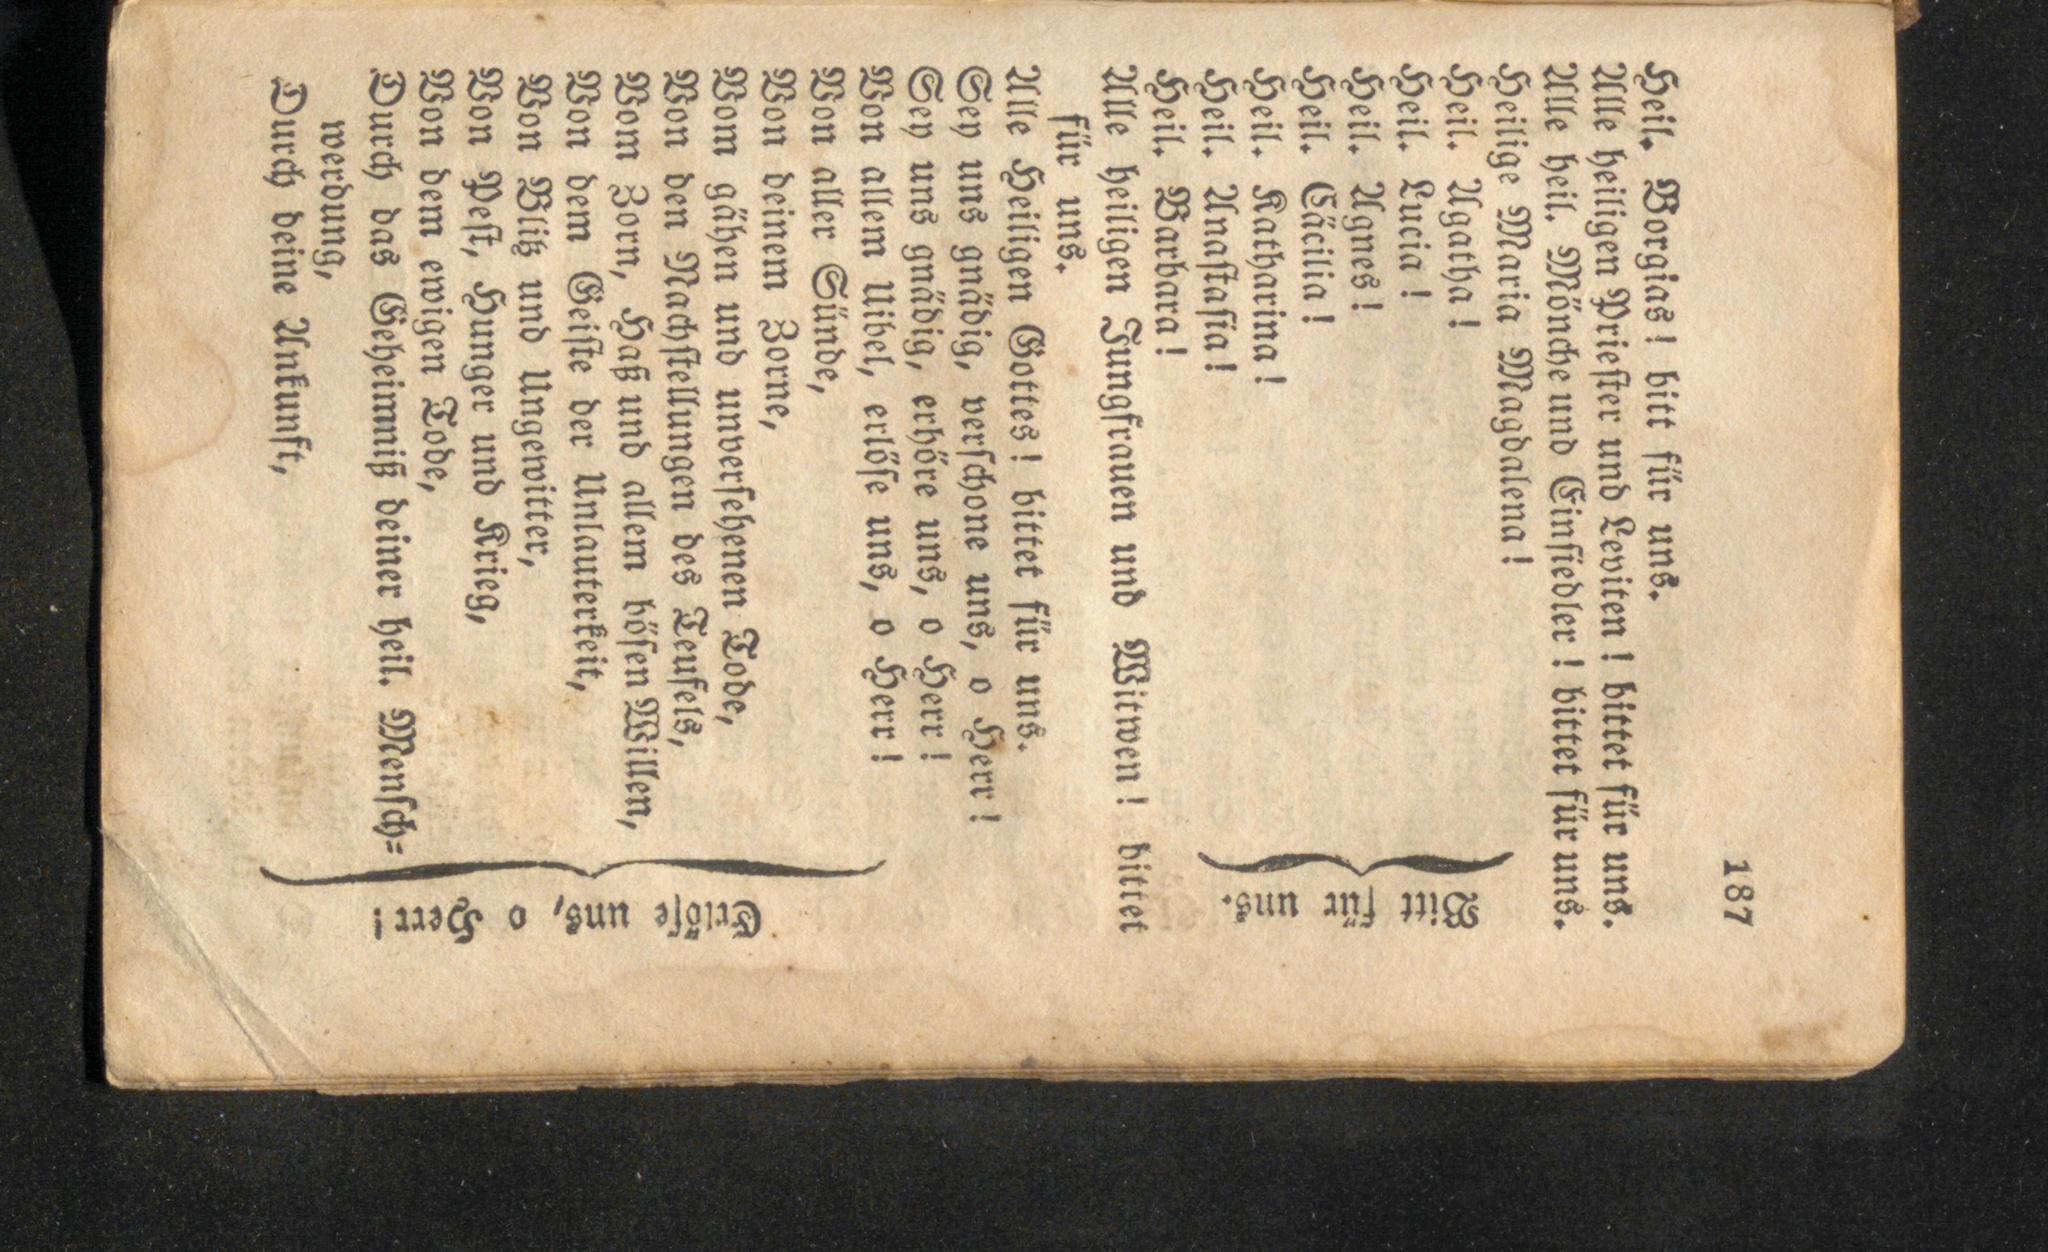 187
Heil. Borgias! bitt für uns.
Alle heiligen Priester und Leviten! bittet für uns.
Alle heil. Mönche und Einsiedler! bittet für uns.
Heilige Maria Magdalena!
Heil. Agatha!
Heil. Lucia!
Heil. Agnes!
Heil. Cäcilia!
Heil. Katharina!
Heil. Anastasia!
Heil. Barbara!
Bitt für uns.
Alle heiligen Jungfrauen und Witwen! bittet
für uns.
Alle Heiligen Gottes! bittet für uns.
Sey uns gnädig, verschone uns, o Herr!
Sey uns gnädig, erhöre uns, o Herr!
Von allem Uibel, erlöse uns, o Herr!
Von aller Sünde,
Von deinem Zorne,
Vom gähen und unversehenen Tode,
Von den Nachstellungen des Teufels,
Vom Zorn, Haß und allem bösen Willen,
Von dem Geiste der Unlauterkeit,
Von Blitz und Ungewitter,
Von Pest, Hunger und Krieg,
Von dem ewigen Tode,
Durch das Geheimniß deiner heil. Mensch=
werdung,
Durch deine Ankunft,
Erlöse uns, o Herr!